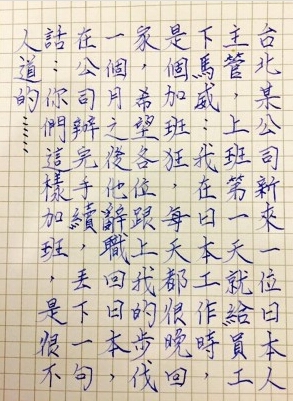 台北某公司新來一位日本人
主管，上班第一天就給員工
下馬威：我在日本工作時，
是個加班狂，每天都很晚回
家，希望各位跟上我的步伐
一個月之後他辭職回日本，
在公司辦完手續，丟下一句
話：你們這樣加班，是很不
人道的……